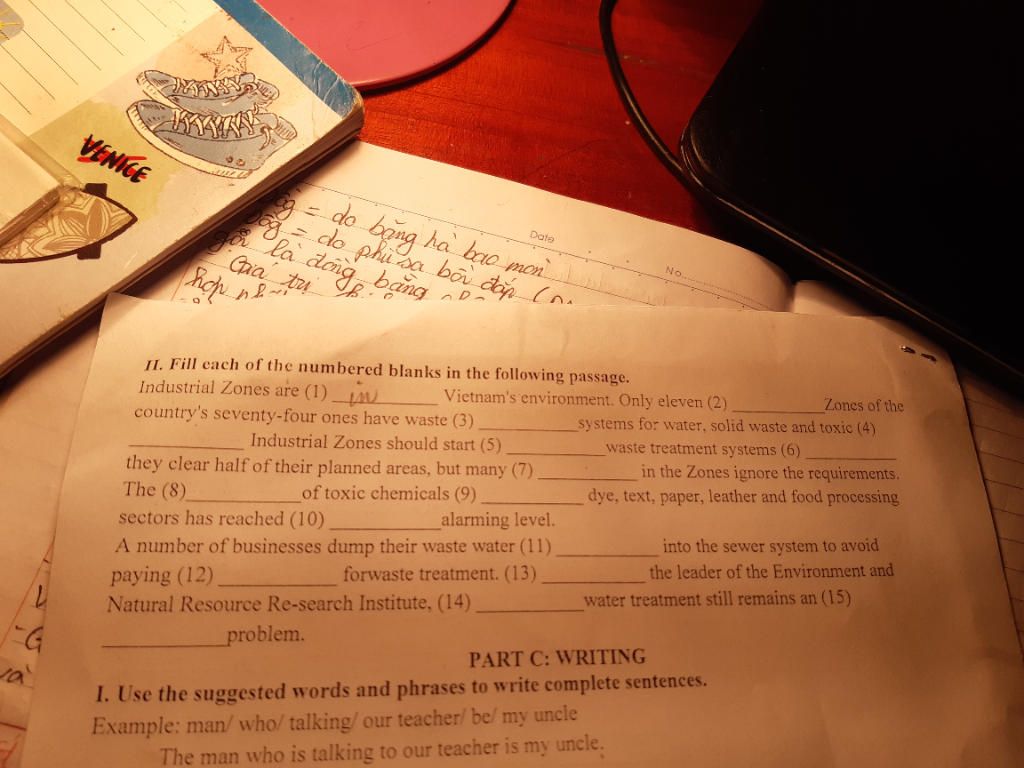 VENICE
Date
No
= do băng hà bào mòn
= do phù sa bồi đắp
gọi là đồng bằng
II. Fill each of the numbered blanks in the following passage.
Industrial Zones are (1) in Vietnam's environment. Only eleven (2) __________Zones of the
country's seventy-four ones have waste (3) __________systems for water, solid waste and toxic (4)
__________ Industrial Zones should start (5) __________waste treatment systems (6) __________
they clear half of their planned areas, but many (7) __________ in the Zones ignore the requirements.
The (8)__________of toxic chemicals (9) __________ dye, text, paper, leather and food processing
sectors has reached (10) __________alarming level.
A number of businesses dump their waste water (11) __________ into the sewer system to avoid
paying (12) __________ forwaste treatment. (13) __________ the leader of the Environment and
Natural Resource Re-search Institute, (14) __________water treatment still remains an (15)
__________problem.
PART C: WRITING
I. Use the suggested words and phrases to write complete sentences.
Example: man/ who/ talking/ our teacher/ be/ my uncle
The man who is talking to our teacher is my uncle.